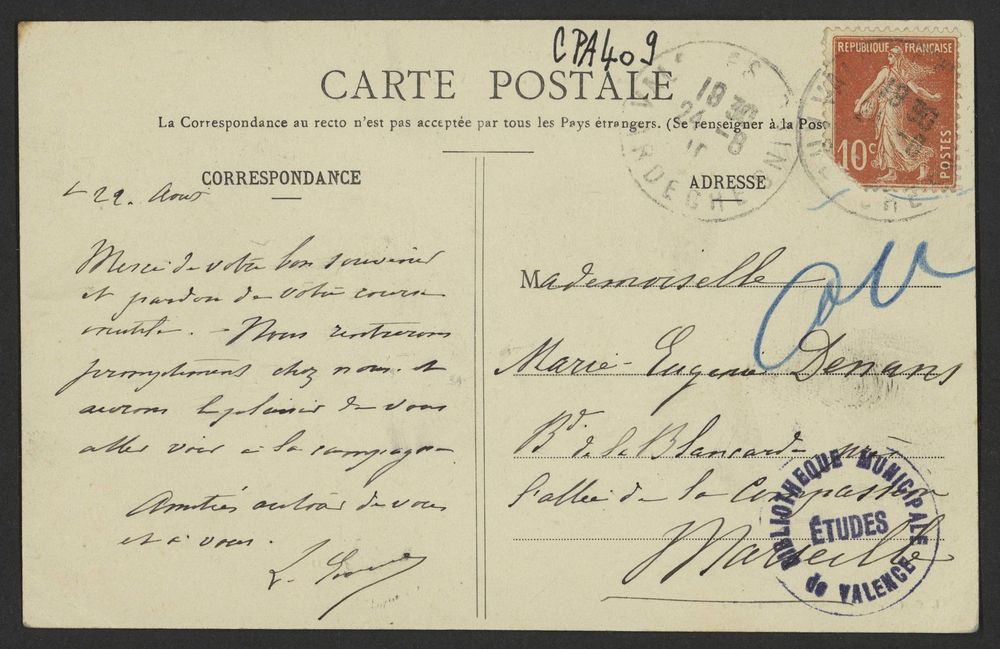 CPA409
CARTE POSTALE
La Correspondance au recto n'est pas acceptée par tous les Pays étrangers. (Se renseigner à la Pos
CORRESPONDANCE
ADRESSE
REPUBLIQUE FRANÇAISE
10c
POSTES
18 30
24 -8
ARDECHE
22. Aout
Merci de votre bon souvenir
et pardon de votre course
inutile. - Nous rentrerons
promptement chez nous. et
aurons le plaisir de vous
aller voir à la campagne
Amitiés autour de vous
et à vous.
Mademoiselle
Marie-Eugenie Denans
Bd de la Blancarde près
l'allée de la Compassion
Marseille
BIBLIOTHEQUE MUNICIPALE
ÉTUDES
de VALENCE